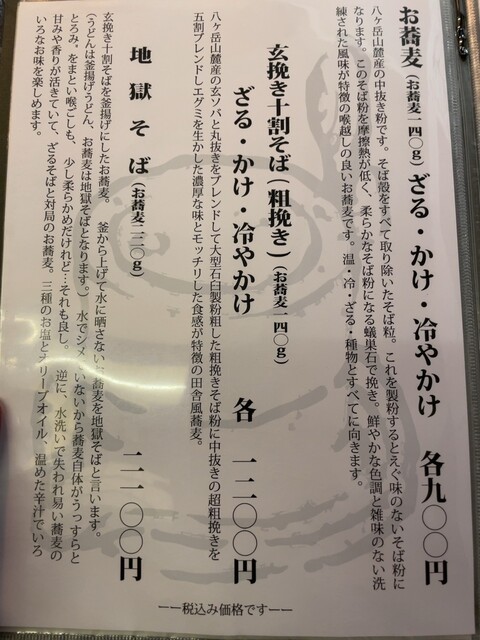 お蕎麦（お蕎麦一四〇g）ざる・かけ・冷やかけ　各九〇〇円
八ヶ岳山麓産の中抜き粉です。そば殻をすべて取り除いたそば粒。これを製粉するとえぐ味のないそば粉に
なります。このそば粉を摩擦熱が低く、柔らかなそば粉になる蟻巣石で挽き。鮮やかな色調と雑味のない洗
練された風味が特徴の喉越しの良いお蕎麦です。温・冷・ざる・種物とすべてに向きます。
玄挽き十割そば（粗挽き）（お蕎麦一四〇g）
ざる・かけ・冷やかけ　各　一二〇〇円
八ヶ岳山麓産の玄ソバと丸抜きをブレンドして大型石臼製粉粗した粗挽きそば粉に中抜きの超粗挽きを
五割ブレンドしエグミを生かした濃厚な味とモッチリした食感が特徴の田舎風蕎麦。
地獄そば（お蕎麦二二〇g）　二一〇〇円
玄挽き十割そばを釜揚げにしたお蕎麦。　釜から上げて水に晒さない お蕎麦を地獄そばと言います。
（うどんは釜揚げうどん、お蕎麦は地獄そばとなります。）水でシメ いないから蕎麦自体がうっすらと
とろみ。をまとい喉ごしも、少し柔らかめだけれど…それも良し。　逆に、水洗いで失われ易い蕎麦の
甘みや香りが活きていて、ざるそばと対局のお蕎麦。三種のお塩と リーブオイル、温めた辛汁でいろ
いろなお味を楽しめます。
ーー税込み価格ですーー